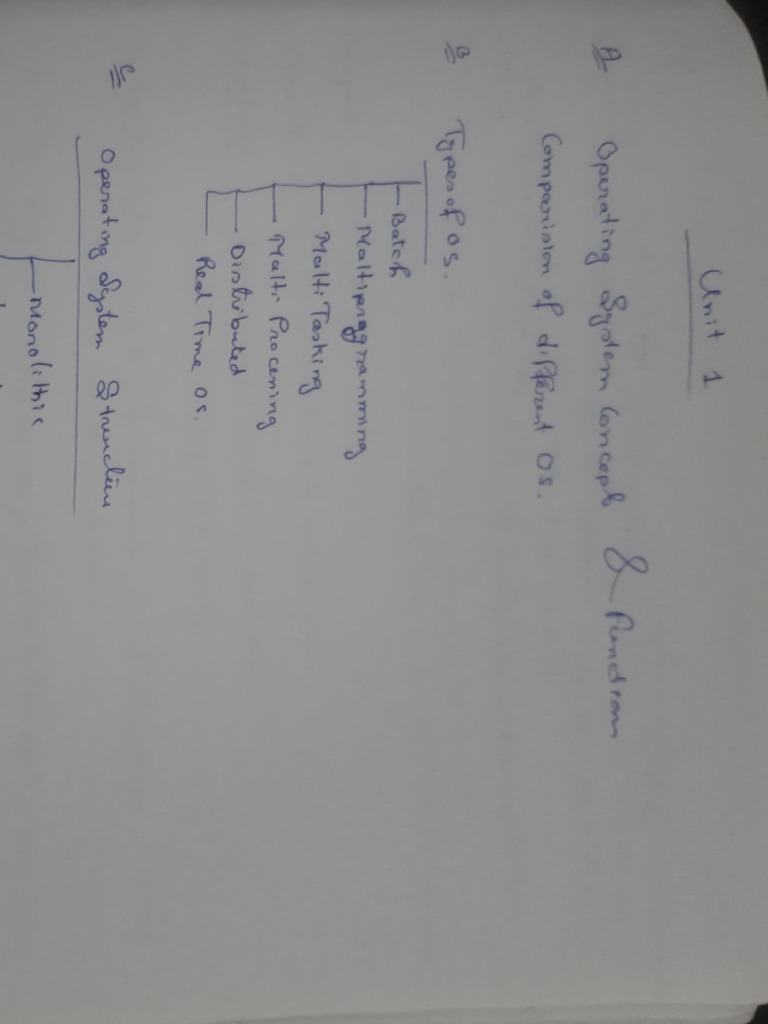 Unit 1
A Operating System Concepts & Functions
Comparision of different OS.
B Types of OS.
Batch
Multiprogramming
Multi Tasking
Multi Processing
Distributed
Real Time OS.
C Operating System Structure
Monolithic